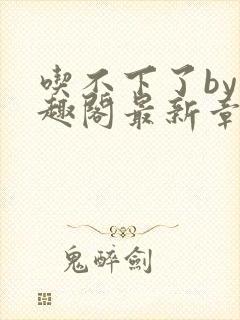 喫不下了by
趣閣最新章
鬼醉劍